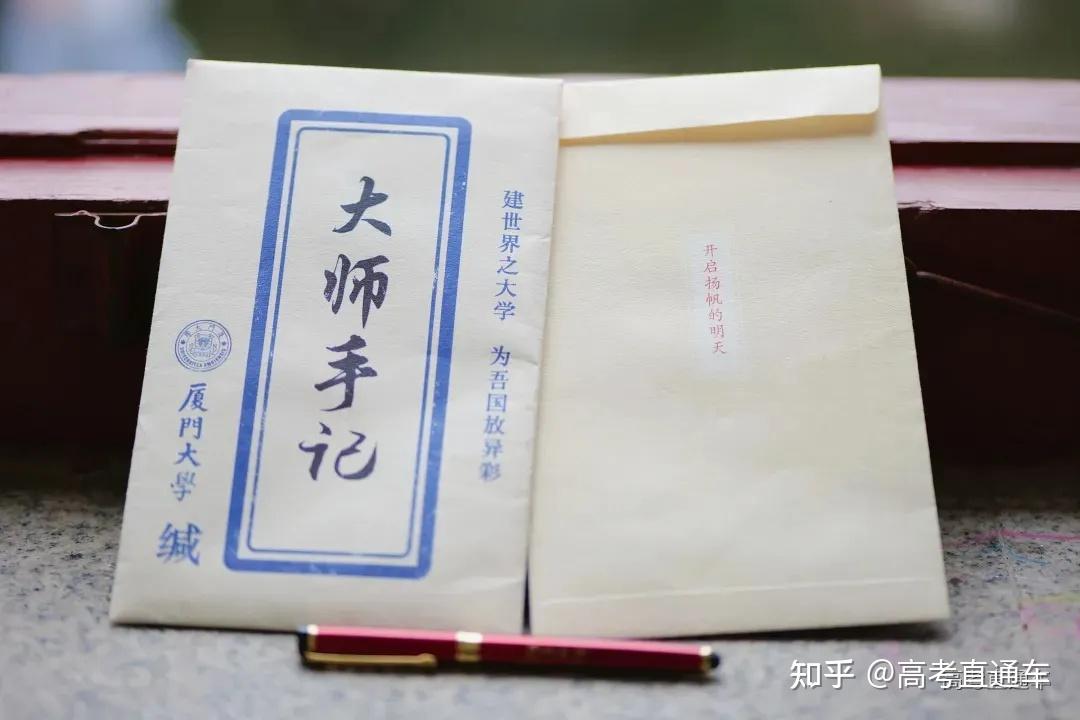 建世界之大学 为吾国放异彩
大师手记
厦門大學 缄
开启扬帆的明天
知乎 @高考直通车